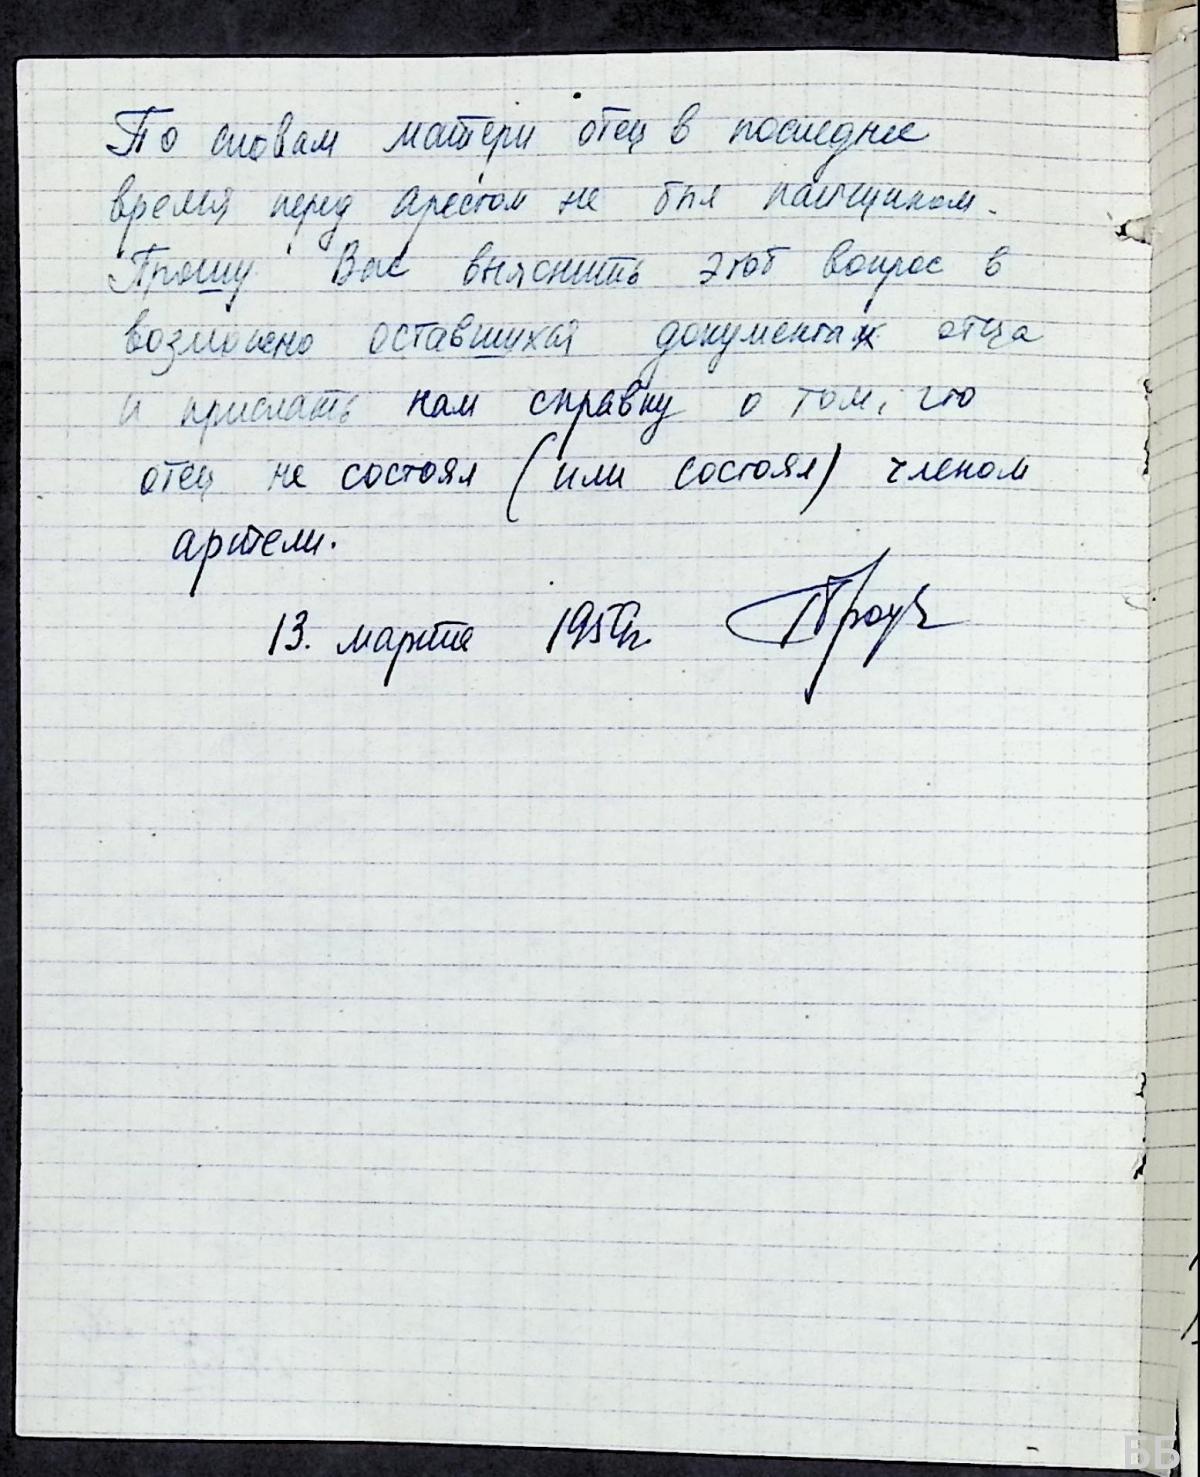 По словам матери отец в последнее
время перед арестом не был пайщиком.
Прошу Вас выяснить этот вопрос в
возможно оставшихся документах отца
и прислать нам справку о том, что
отец не состоял (или состоял) членом
артели.
13. марта 1959г.
ББ